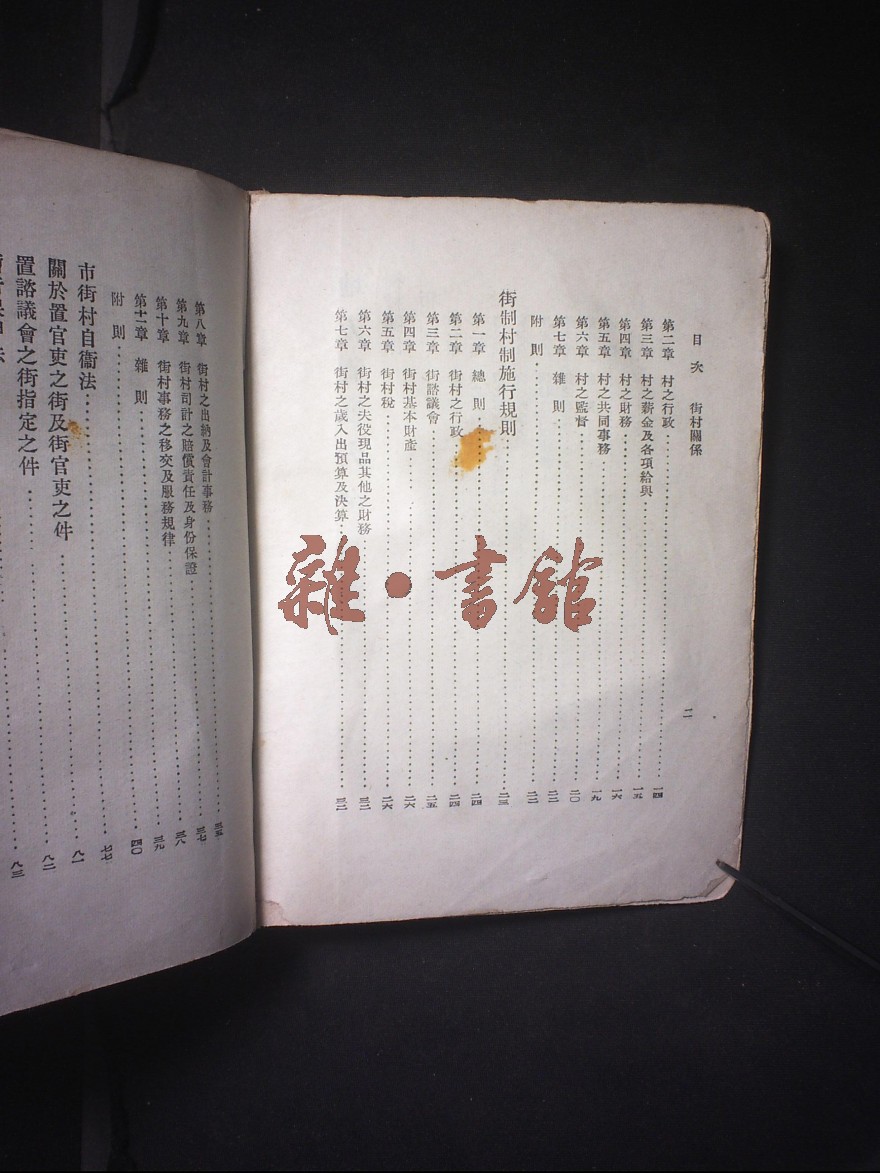 目次 街村關係
二
第二章 村之行政 一四
第三章 村之薪金及各項給與 一五
第四章 村之財務 一六
第五章 村之共同事務 一九
第六章 村之監督 二〇
第七章 雜則 二二
附則 二二
街制村制施行規則 二三
第一章 總則 二四
第二章 街村之行政 二四
第三章 街諮議會 二五
第四章 街村基本財產 二六
第五章 街村稅 二六
第六章 街村之夫役現品其他之財務 三二
第七章 街村之歲入出預算及決算 三二
第八章 街村之出納及會計事務 三五
第九章 街村司計之賠償責任及身份保證 三七
第十章 街村事務之移交及服務規律 三八
第十一章 雜則 三九
附則 四〇
市街村自衞法 七七
關於置官吏之街及街官吏之件 八一
置諮議會之街指定之件 八二
八三
雜·書館